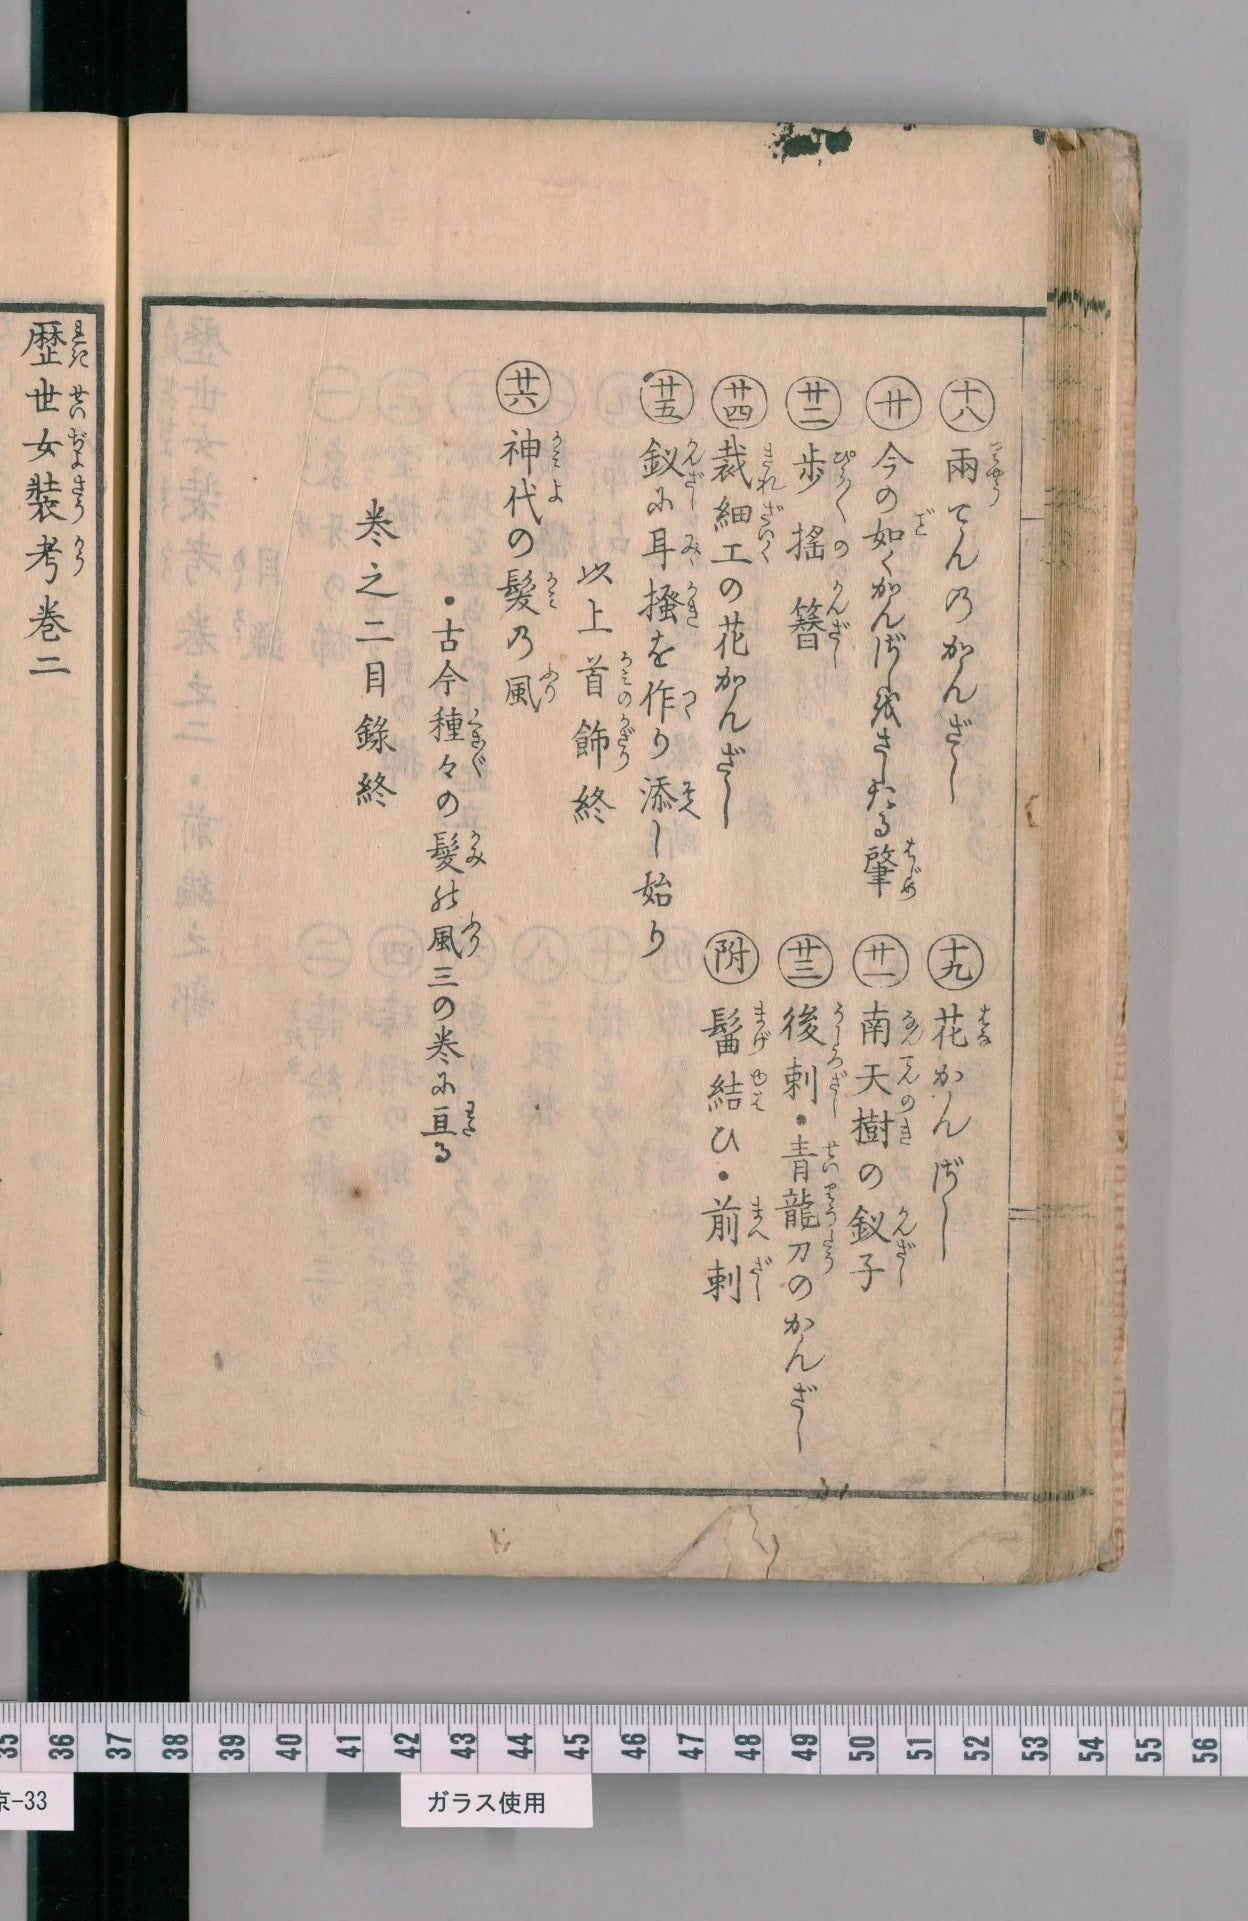 十八 兩てんのかんざし
十九 花かんざし
廿 今の如くかんざしをさしたる肇
廿一 南天樹の釵子
廿二 歩揺簪
廿三 後刺・青龍刀のかんざし
廿四 裁細工の花かんざし
附 髷結ひ・前刺
廿五 釵に耳掻を作り添し始り
以上首飾終
廿六 神代の髪の風
・古今種々の髪の風三の巻に亘る
巻之二目録終
歴世女装考巻二
35 36 37 38 39 40 41 42 43 44 45 46 47 48 49 50 51 52 53 54 55 56
京-33
ガラス使用